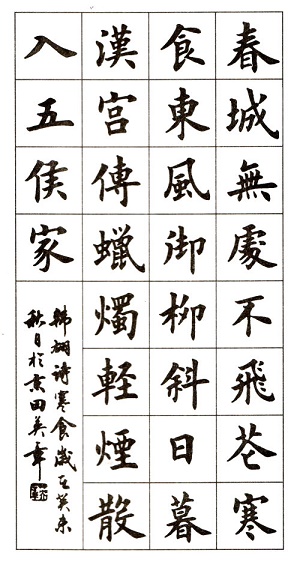 春城無處不飛花寒
食東風御柳斜日暮
漢宮傳蠟燭軽煙散
入五侯家
韩翃诗寒食岁在癸未
秋月於京田英章